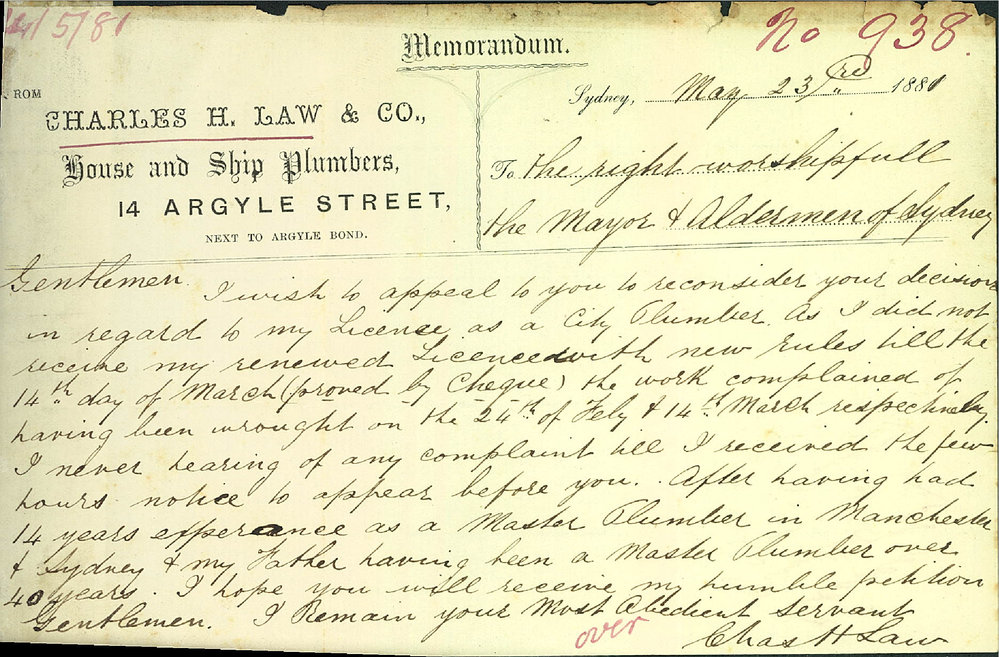 24/5/81
No 938
Memorandum.
FROM
CHARLES H. LAW & CO.,
House and Ship Plumbers,
14 ARGYLE STREET,
NEXT TO ARGYLE BOND.
Sydney, May 23rd 1881
To the right worshipfull
the Mayor & Aldermen of Sydney
Gentlemen.
I wish to appeal to you to reconsider your decision
in regard to my Licence as a City Plumber. As I did not
receive my renewed Licence with new rules till the
14th day of March (proved by Cheque) the work complained of
having been wrought on the 24th of Feby & 14th March respectively.
I never hearing of any complaint till I received the few
hours notice to appear before you. After having had
14 years experance as a Master Plumber in Manchester
& Sydney & my Father having been a Master Plumber over
40 years. I hope you will receive my humble petition
Gentlemen. I Remain your Most Obedient Servant
over
Chas H Law